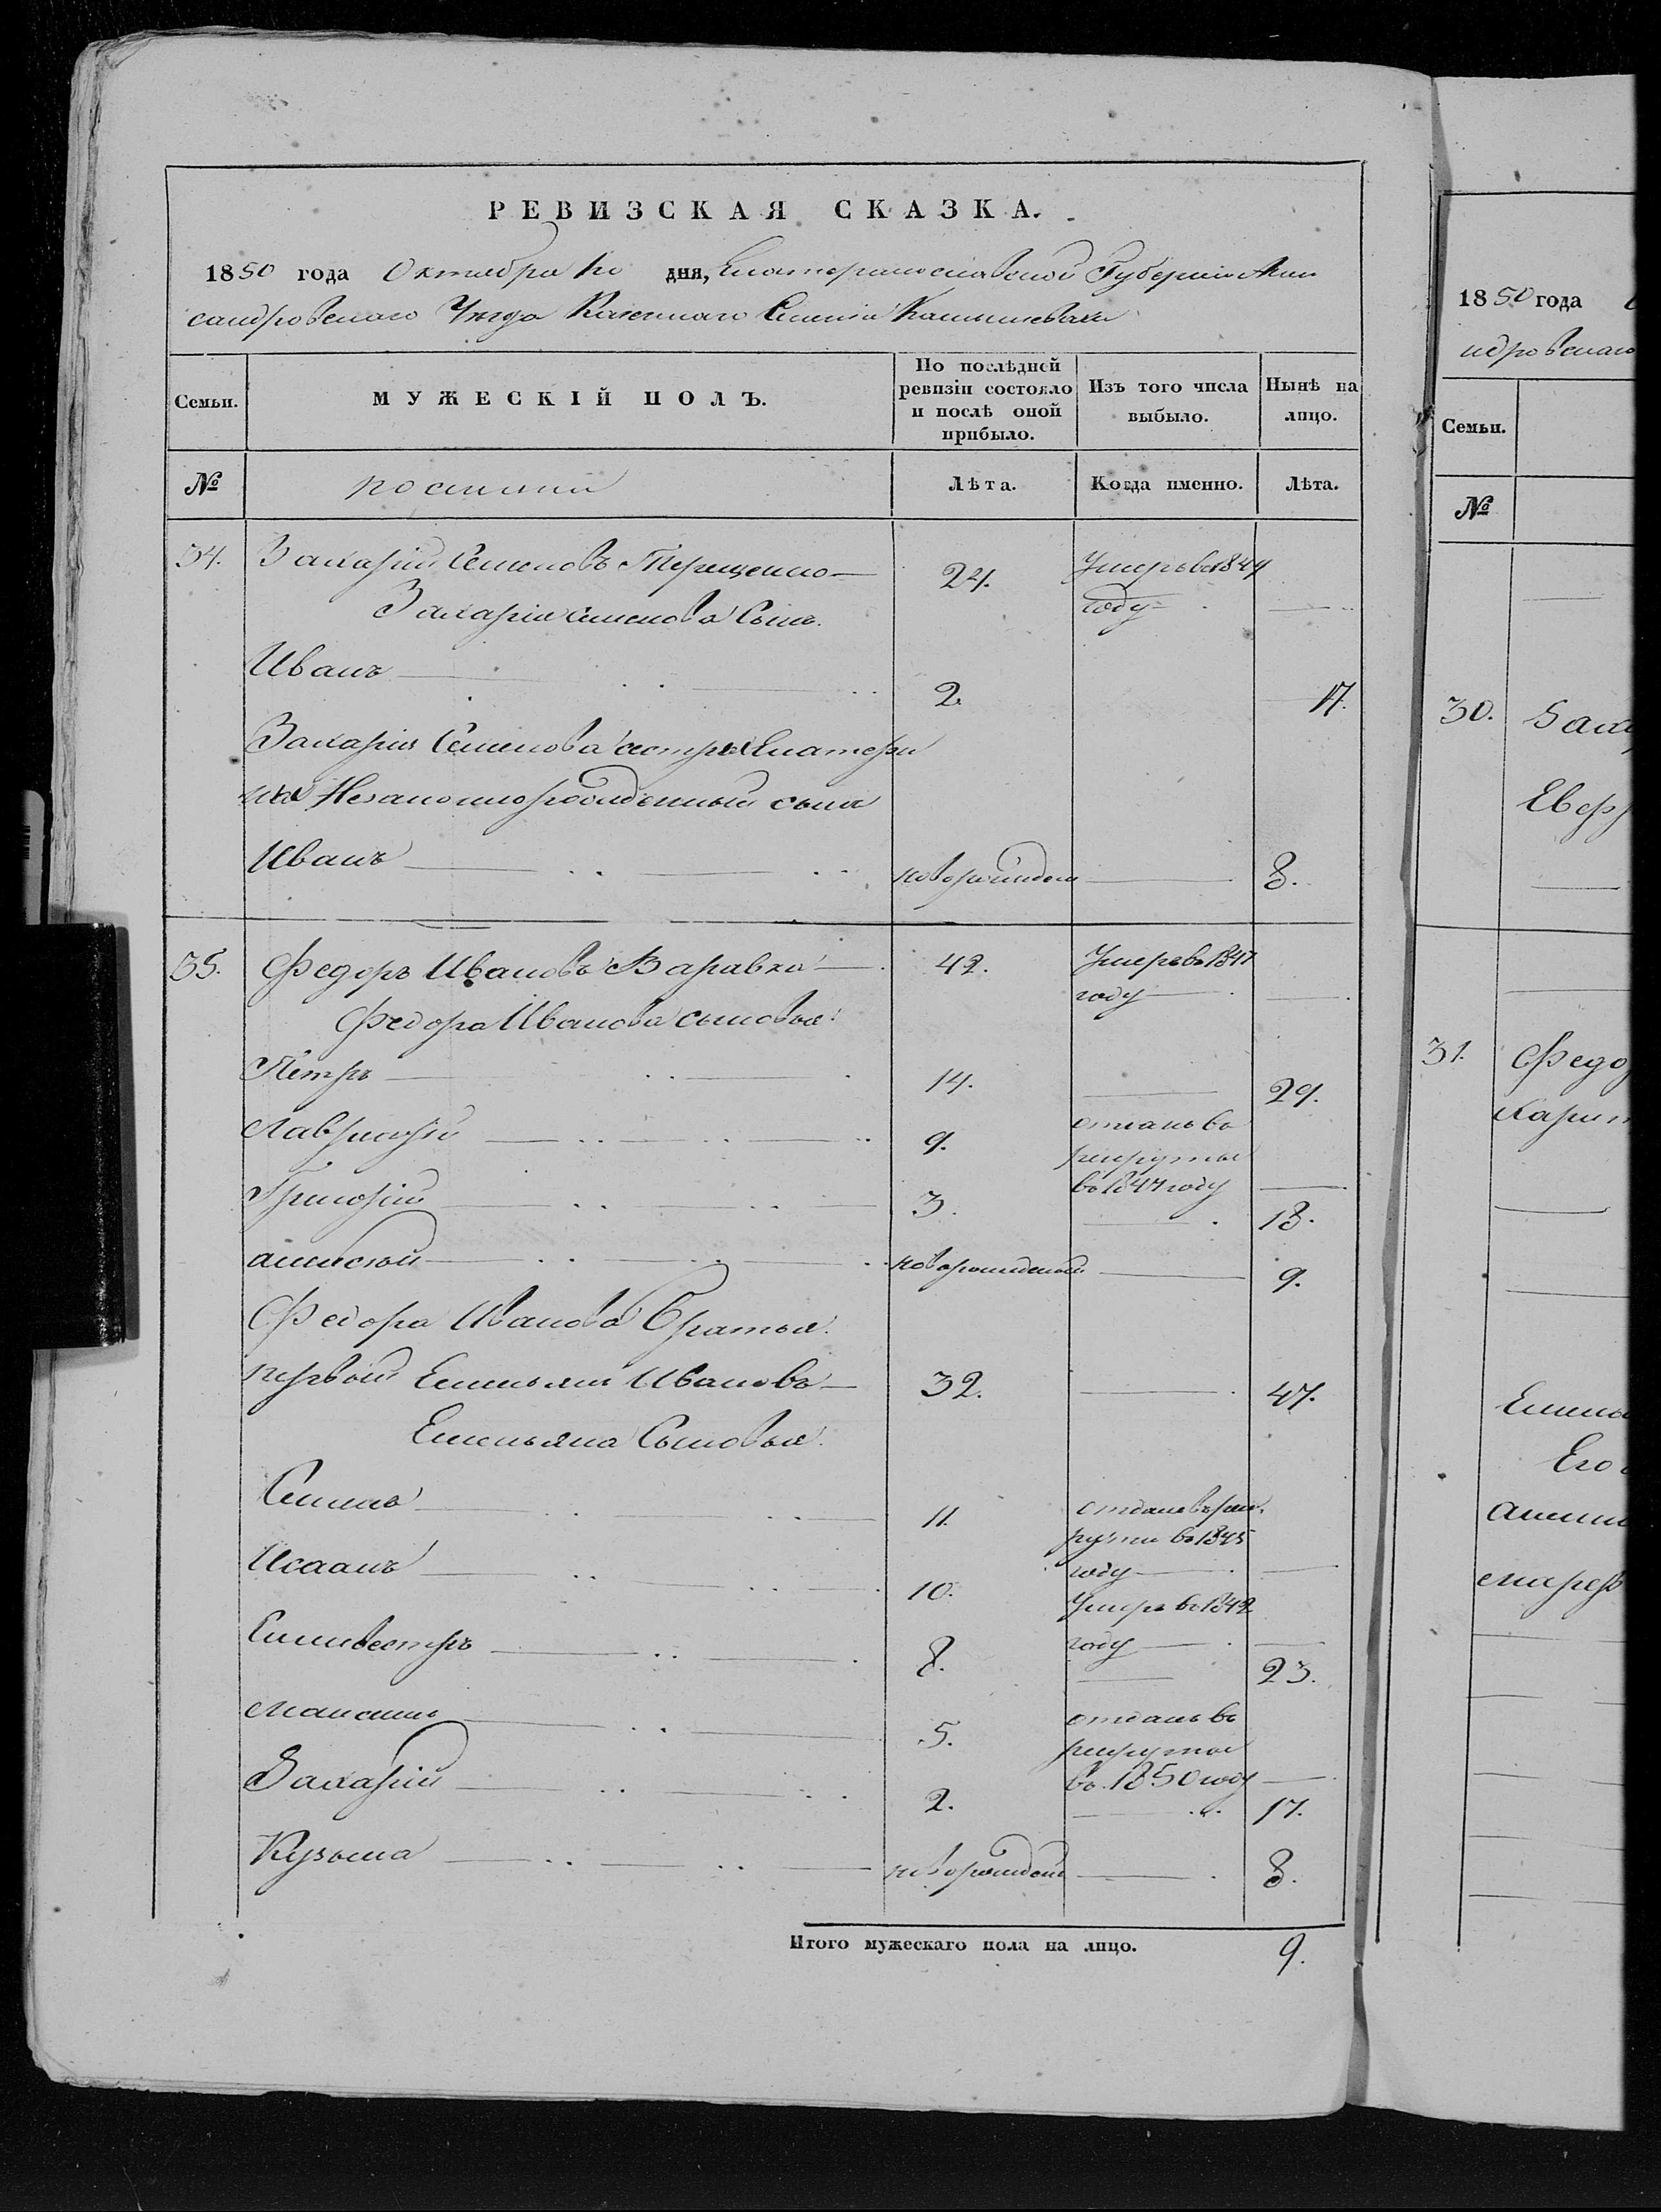 РЕВИЗСКАЯ СКАЗКА.
1850 года Октября 10 дня, Екатеринославской Губернии Алек
сандровскаго Уезда Казеннаго Селенія Камышеваха
Семьи.
МУЖЕСКІЙ ПОЛЪ.
По послѣдней ревизіи состояло и послѣ оной прибыло.
Изъ того числа выбыло.
Нынѣ на лицо.
№
Лѣта.
Когда именно.
Лѣта.
34. Захарій Семеновъ Терещенко 24. Умеръ в 1844
году
Захарія Семенова Сынъ
Иванъ 2. 17.
Захарія Семенова сестры Екатери
ны Незаконнорожденный сынъ
Иванъ новорожденъ 8.
35. Федоръ Ивановъ Варавка 42. Умеръ въ 1847
году
Федора Иванова сыновья:
Петръ 14. 29.
Лаврентій 9. отданъ въ
рекруты
въ 1847 году
Григорій 3. 18.
алексѣй новорожденный 9.
Федора Иванова Братья.
первой Емельянъ Ивановъ 32. 47.
Емельяна Сыновья.
Семенъ 11. отданъ въ рек
руты въ 1845
году
Исаакъ 10. Умеръ въ 1842
году
Силивестръ 8. 23.
Максимъ 5. отданъ въ
рекруты
въ 1850 году
Захарій 2. 17.
Кузьма новорожденъ 8.
Итого мужескаго пола на лицо. 9.
1850 года
ндровскаго
Семьи.
№
30. Заха
31. Федо
Харит
Емель
Его